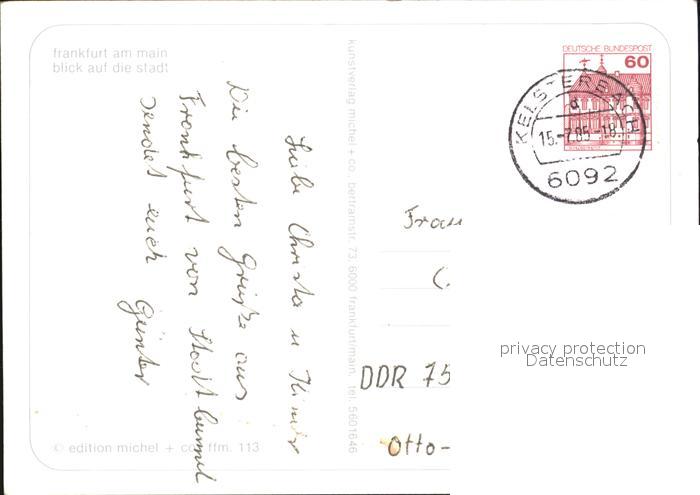 frankfurt am main
blick auf die stadt
Liebe Christa u Kinder
Die besten Grüße aus
Frankfurt von Stadtbummel
sendet euch Günter
© edition michel + co. ffm. 113
kunstverlag michel + co. bertramstr. 73, 6000 frankfurt/main, tel: 5601646
DEUTSCHE BUNDESPOST
60
KELSTERBACH
a
15.-7.85-18
6092
Frau
DDR 75
Otto-
privacy protection
Datenschutz